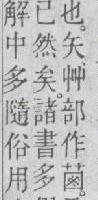 也。矢艸部作
已然矣。諸書多
解中多隨俗用